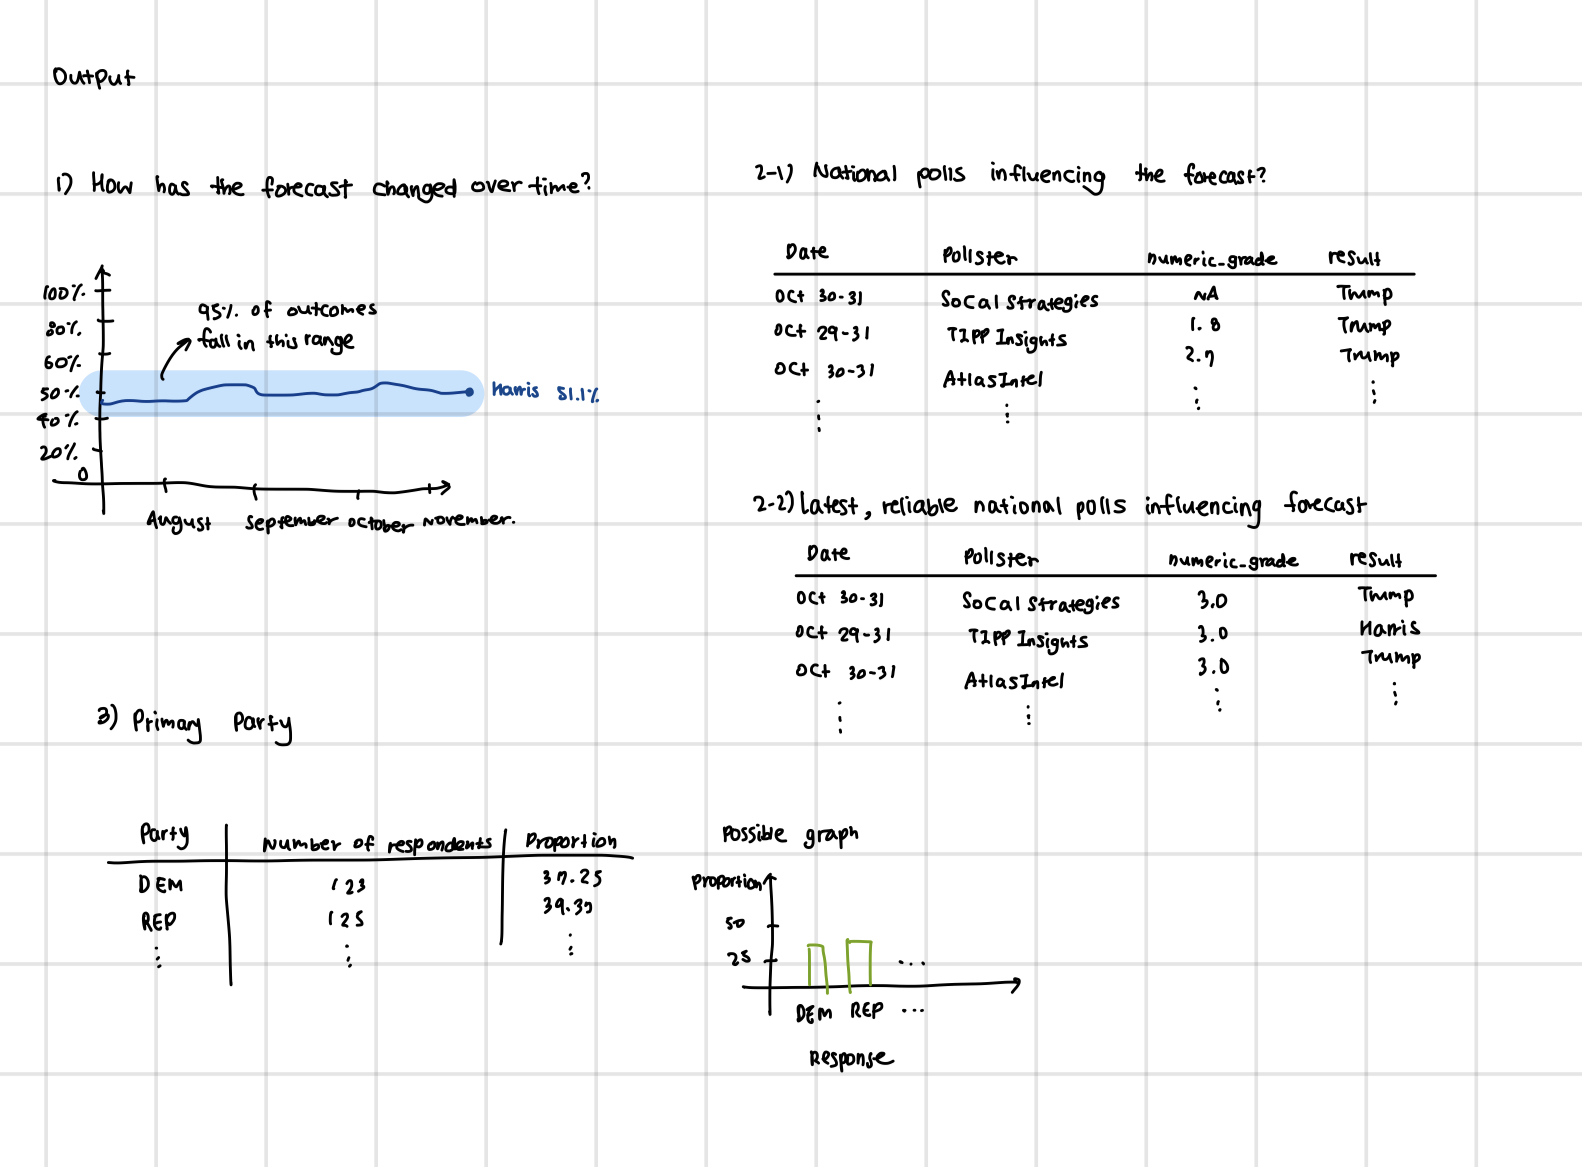 Output
1) How has the forecast changed over time?
100%.
80%.
60%.
50%.
40%.
20%.
0
95%. of outcomes
fall in this range
Harris 51.1%
August September October November.
2-1) National polls influencing the forecast?
Date Pollster numeric_grade result
Oct 30-31 SoCal Strategies NA Trump
Oct 29-31 TIPP Insights 1.8 Trump
Oct 30-31 AtlasIntel 2.7 Trump
2-2) Latest, reliable national polls influencing forecast
Date Pollster numeric_grade result
Oct 30-31 SoCal Strategies 3.0 Trump
Oct 29-31 TIPP Insights 3.0 Harris
Oct 30-31 AtlasIntel 3.0 Trump
3) Primary Party
Party Number of respondents Proportion
DEM 123 37.25
REP 125
Possible graph
Proportion
50
25
...
DEM REP ...
Response